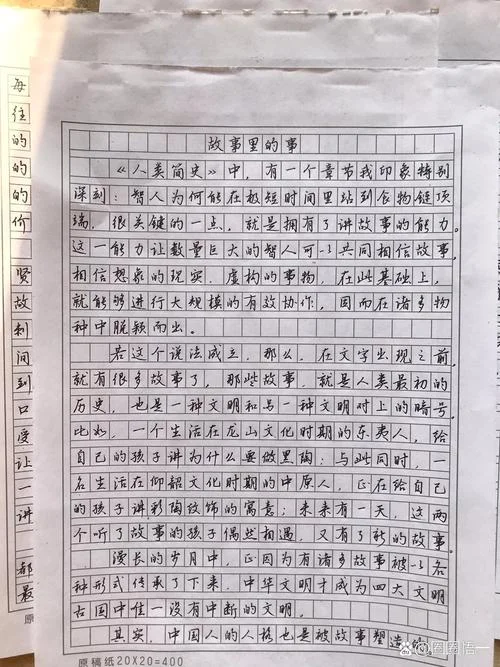 故事里的事
《人类简史》中，有一个章节我印象特别
深刻：智人为何能在极短时间里站到食物链顶
端，很关键的一点，就是拥有了讲故事的能力。
这一能力让数量巨大的智人可以共同相信故事，
相信想象的现实、虚构的事物，在此基础上，
就能够进行大规模的有效协作，因而在诸多物
种中脱颖而出。
若这个说法成立，那么，在文字出现之前，
就有很多故事了，那些故事，就是人类最初的
历史，也是一种文明和另一种文明对上的暗号。
比如，一个生活在龙山文化时期的东夷人，给
自己的孩子讲为什么要做黑陶；与此同时，一
名生活在仰韶文化时期的中原人，正在给自己
的孩子讲彩陶纹饰的寓意；未来有一天，这两
个听了故事的孩子偶然相遇，又有了新的故事。
漫长的岁月中，正因为有诸多故事被以各
种形式传承了下来，中华文明才成为四大文明
古国中唯一没有中断的文明。
其实，中国人的人格也是被故事塑造
原稿纸20X20=400
每
往
的
的
的
价
贤
故
刺
间
到
口
受
让
一
讲
都
最
原
@圈圈悟一